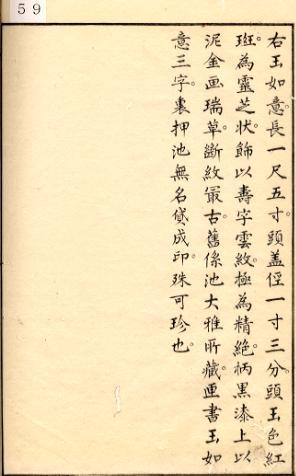 59
右玉如意。長一尺五寸。頭盖径一寸三分。頭玉色紅
斑。為靈芝状。飾以壽字雲紋。極為精絶。柄黒漆。上以
泥金画瑞草。斷紋最古。舊係池大雅所藏。匣書玉如
意三字。裏押池無名貸成印。殊可珍也。